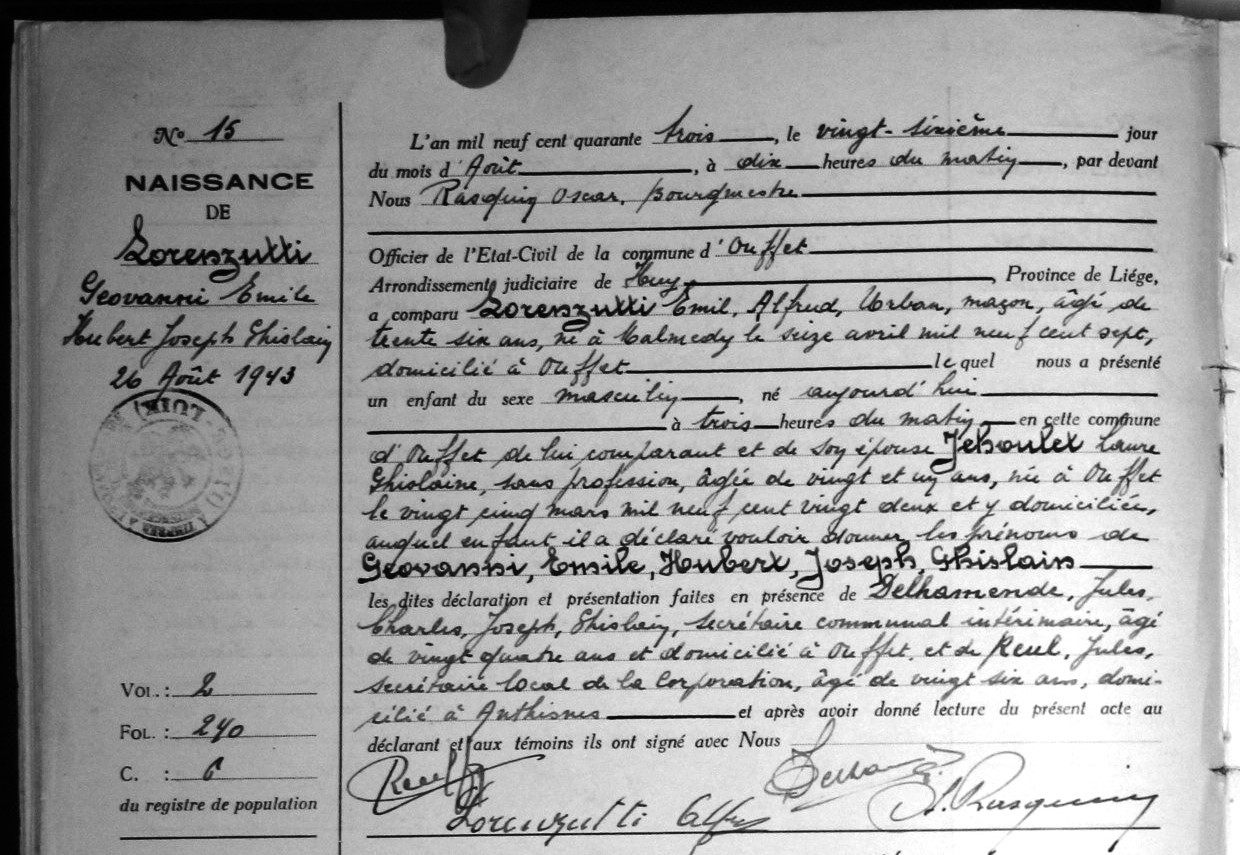 No 15
NAISSANCE
DE
Lorenzutti
Geovanni Emile
Hubert Joseph Ghislain
26 Août 1943
VOL. : 2
FOL. : 240
C. : 6
du registre de population
L'an mil neuf cent quarante trois, le vingt-sixième jour
du mois d'Août, à dix heures du matin, par devant
Nous Rasquin Oscar, Bourgmestre
Officier de l'Etat-Civil de la commune d'Ouffet
Arrondissement judiciaire de Huy, Province de Liége,
a comparu Lorenzutti Emil, Alfred, Urban, maçon, âgé de
trente six ans, né à Malmedy le seize avril mil neuf cent sept,
domicilié à Ouffet lequel nous a présenté
un enfant du sexe masculin, né aujourd'hui
à trois heures du matin en cette commune
d'Ouffet de lui comparant et de son épouse Jehoulet Laure
Ghislaine, sans profession, âgée de vingt et un ans, née à Ouffet
le vingt cinq mars mil neuf cent vingt deux et y domiciliée,
auquel enfant il a déclaré vouloir donner les prénoms de
Geovanni, Emile, Hubert, Joseph, Ghislain
les dites déclaration et présentation faites en présence de Delhamende, Jules,
Charles, Joseph, Ghislain, secrétaire communal intérimaire, âgé
de vingt quatre ans et domicilié à Ouffet, et de Reul, Jules,
secrétaire local de la Corporation, âgé de vingt six ans, domi-
cilié à Anthisnes et après avoir donné lecture du présent acte au
déclarant et aux témoins ils ont signé avec Nous
Reul
Lorenzutti Alfred
O. Rasquin